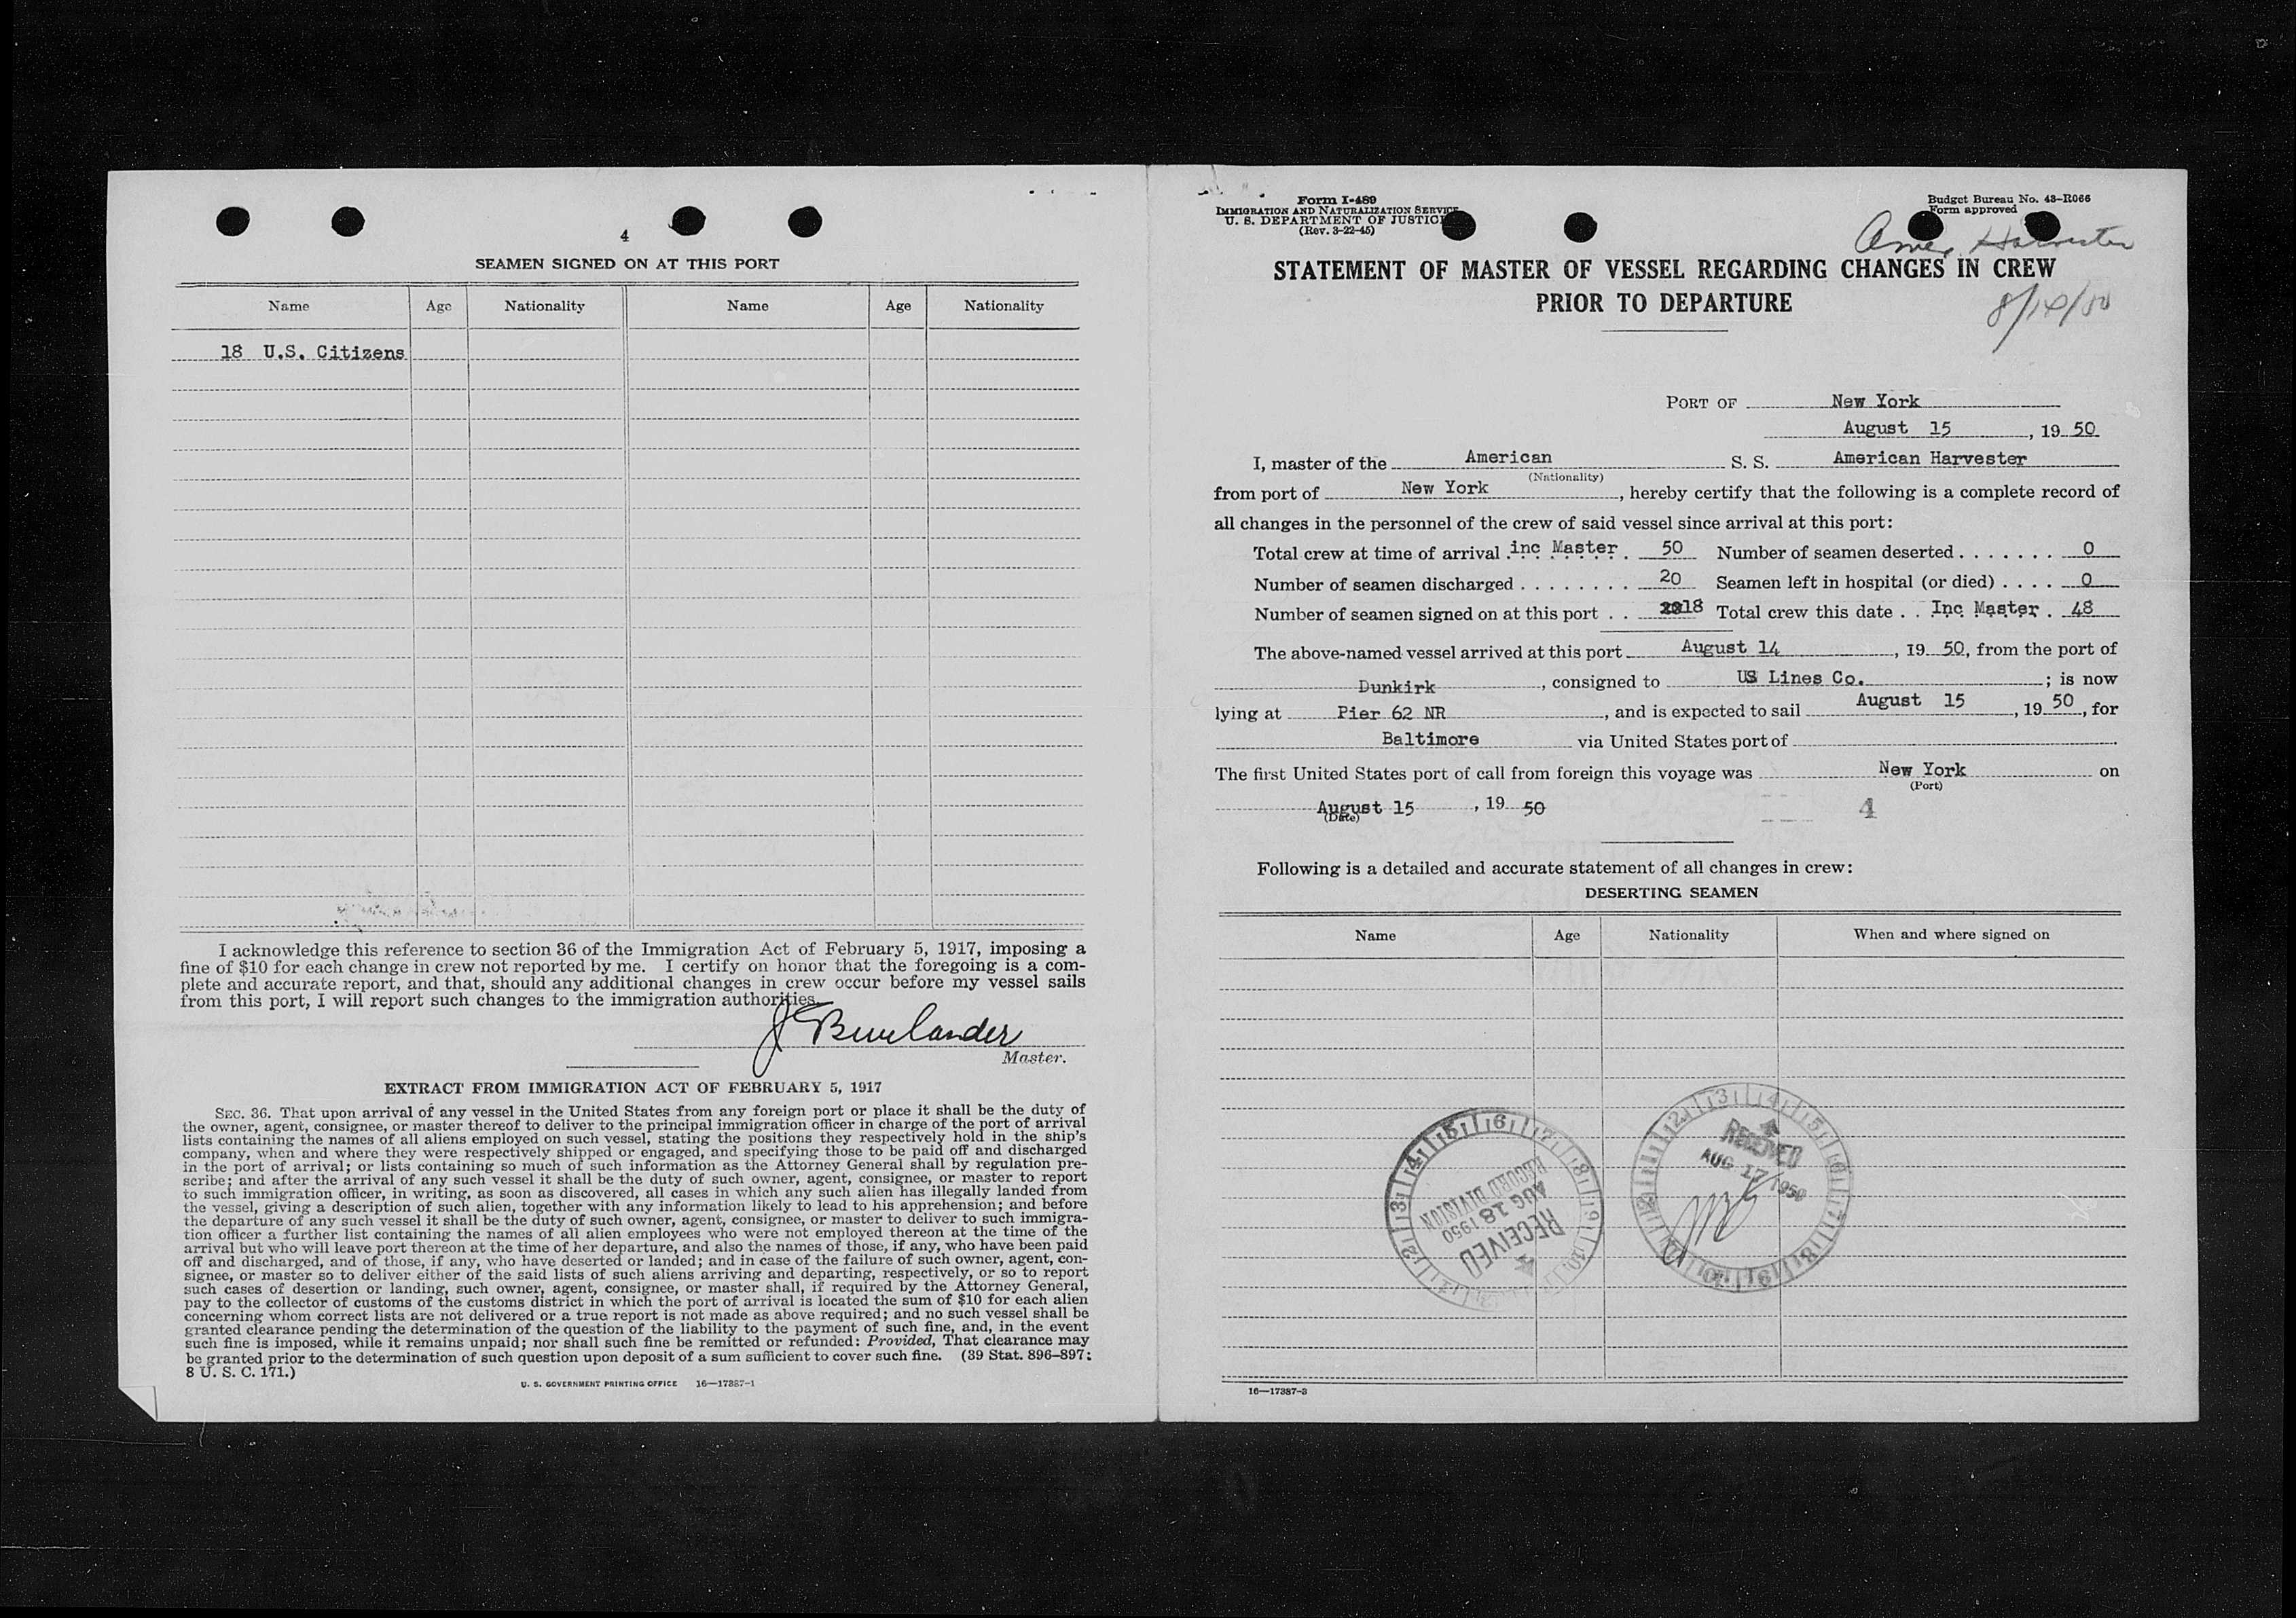 4
SEAMEN SIGNED ON AT THIS PORT
Name Age Nationality Name Age Nationality
18 U.S. Citizens
I acknowledge this reference to section 36 of the Immigration Act of February 5, 1917, imposing a
fine of $10 for each change in crew not reported by me. I certify on honor that the foregoing is a com-
plete and accurate report, and that, should any additional changes in crew occur before my vessel sails
from this port, I will report such changes to the immigration authorities.
Master.
EXTRACT FROM IMMIGRATION ACT OF FEBRUARY 5, 1917
SEC. 36. That upon arrival of any vessel in the United States from any foreign port or place it shall be the duty of
the owner, agent, consignee, or master thereof to deliver to the principal immigration officer in charge of the port of arrival
lists containing the names of all aliens employed on such vessel, stating the positions they respectively hold in the ship's
company, when and where they were respectively shipped or engaged, and specifying those to be paid off and discharged
in the port of arrival; or lists containing so much of such information as the Attorney General shall by regulation pre-
scribe; and after the arrival of any such vessel it shall be the duty of such owner, agent, consignee, or master to report
to such immigration officer, in writing, as soon as discovered, all cases in which any such alien has illegally landed from
the vessel, giving a description of such alien, together with any information likely to lead to his apprehension; and before
the departure of any such vessel it shall be the duty of such owner, agent, consignee, or master to deliver to such immigra-
tion officer a further list containing the names of all alien employees who were not employed thereon at the time of the
arrival but who will leave port thereon at the time of her departure, and also the names of those, if any, who have been paid
off and discharged, and of those, if any, who have deserted or landed; and in case of the failure of such owner, agent, con-
signee, or master so to deliver either of the said lists of such aliens arriving and departing, respectively, or so to report
such cases of desertion or landing, such owner, agent, consignee, or master shall, if required by the Attorney General,
pay to the collector of customs of the customs district in which the port of arrival is located the sum of $10 for each alien
concerning whom correct lists are not delivered or a true report is not made as above required; and no such vessel shall be
granted clearance pending the determination of the question of the liability to the payment of such fine, and, in the event
such fine is imposed, while it remains unpaid; nor shall such fine be remitted or refunded: Provided, That clearance may
be granted prior to the determination of such question upon deposit of a sum sufficient to cover such fine. (39 Stat. 896-897;
8 U. S. C. 171.)
U. S. GOVERNMENT PRINTING OFFICE 16—17387-1
Form I-489
IMMIGRATION AND NATURALIZATION SERVICE
U. S. DEPARTMENT OF JUSTICE
(Rev. 3-22-45)
Budget Bureau No. 43-R066
Form approved
Amer Harvester
STATEMENT OF MASTER OF VESSEL REGARDING CHANGES IN CREW
PRIOR TO DEPARTURE
8/14/50
PORT OF New York
August 15, 1950
I, master of the American S. S. American Harvester
(Nationality)
from port of New York, hereby certify that the following is a complete record of
all changes in the personnel of the crew of said vessel since arrival at this port:
Total crew at time of arrival inc Master. 50 Number of seamen deserted . . . . . . . 0
Number of seamen discharged . . . . . . . . 20 Seamen left in hospital (or died) . . . . 0
Number of seamen signed on at this port . . 18 Total crew this date . . Inc Master . 48
The above-named vessel arrived at this port August 14, 1950, from the port of
Dunkirk, consigned to US Lines Co.; is now
lying at Pier 62 NR, and is expected to sail August 15, 1950, for
Baltimore via United States port of
The first United States port of call from foreign this voyage was New York on
(Port)
August 15, 1950
(Date)
4
Following is a detailed and accurate statement of all changes in crew:
DESERTING SEAMEN
Name Age Nationality When and where signed on
RECEIVED
AUG 17 1950
RECEIVED
AUG 18 1950
RECORD DIVISION
16—17387-3